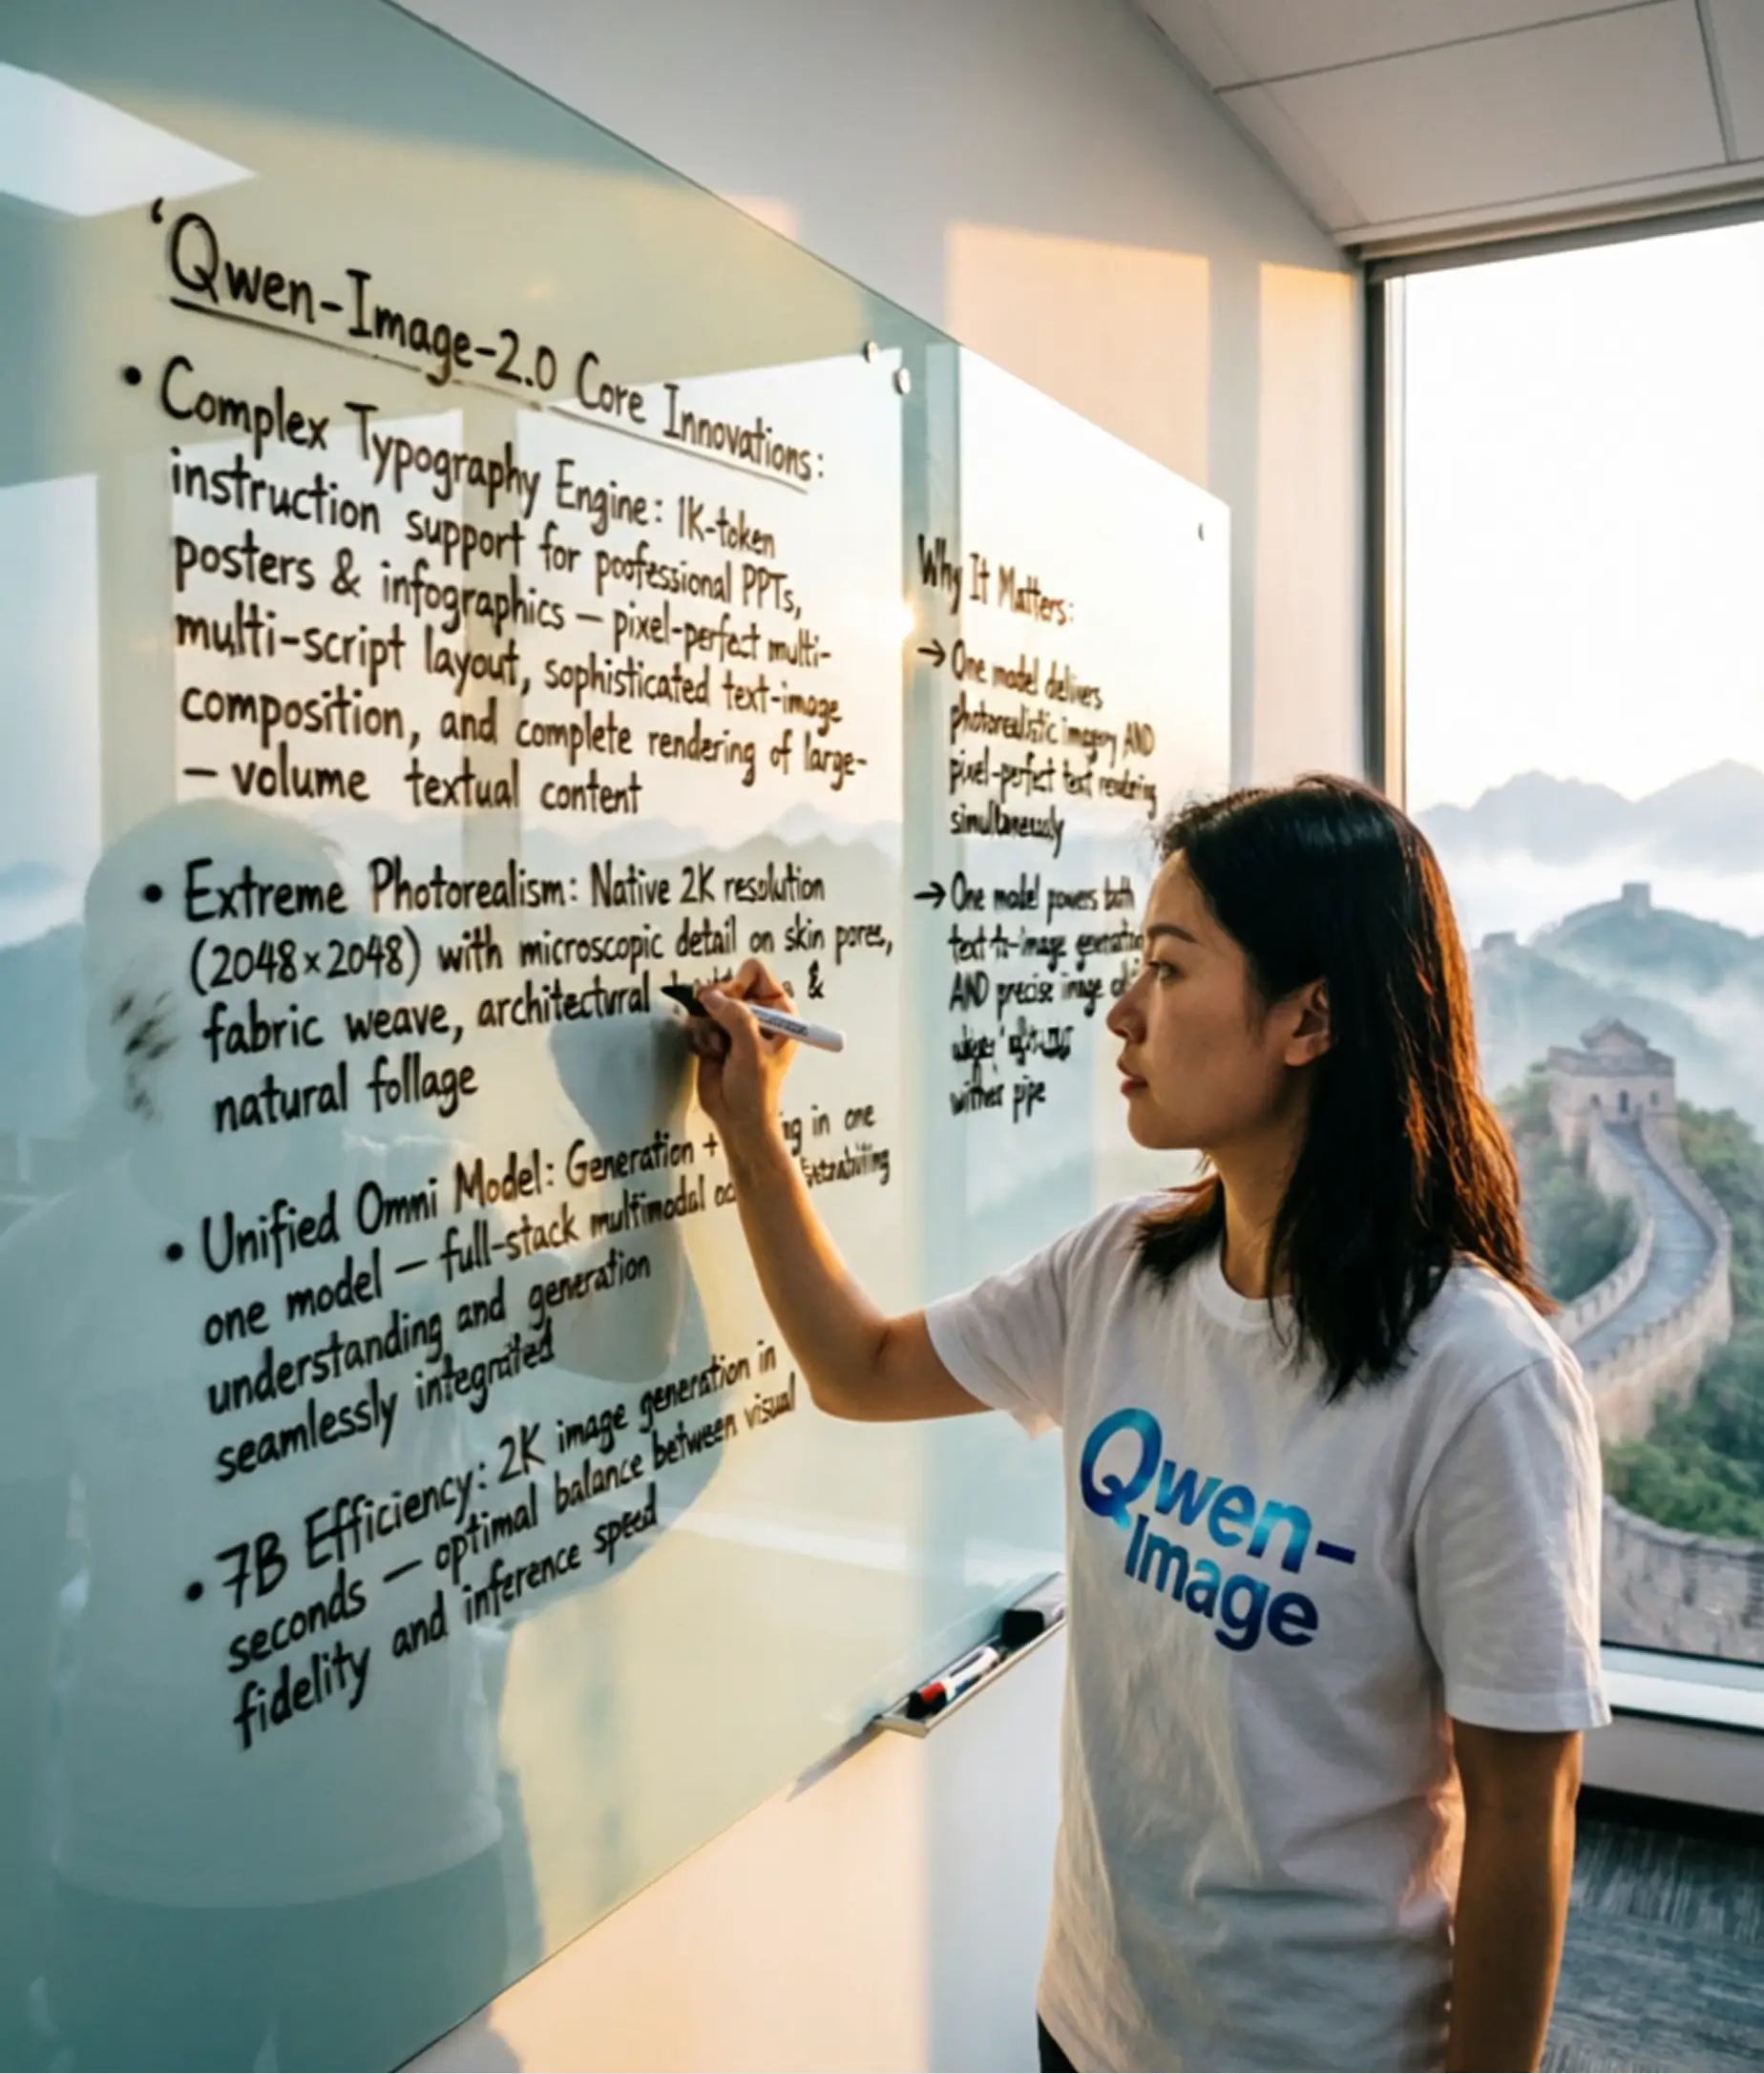 ‘Qwen-Image-2.0 Core Innovations:
• Complex Typography Engine: 1K-token
instruction support for poofessional PPTs,
posters & infographics — pixel-perfect multi-
multi-script layout, sophisticated text-image
composition, and complete rendering of large-
— volume textual content
• Extreme Photorealism: Native 2K resolution
(2048×2048) with microscopic detail on skin pores,
fabric weave, architectural &
natural follage
• Unified Omni Model: Generation + in one
one model — full-stack multimodal
understanding and generation
seamlessly integrated
• 7B Efficiency: 2K image generation in
seconds — optimal balance between visual
fidelity and inference speed
Why It Matters:
→ One model delivers
photorealistic imagery AND
pixel-perfect text rendering
simultaneously
→ One model powers both
text-to-image generation
AND precise image
pipe
Qwen-
Image